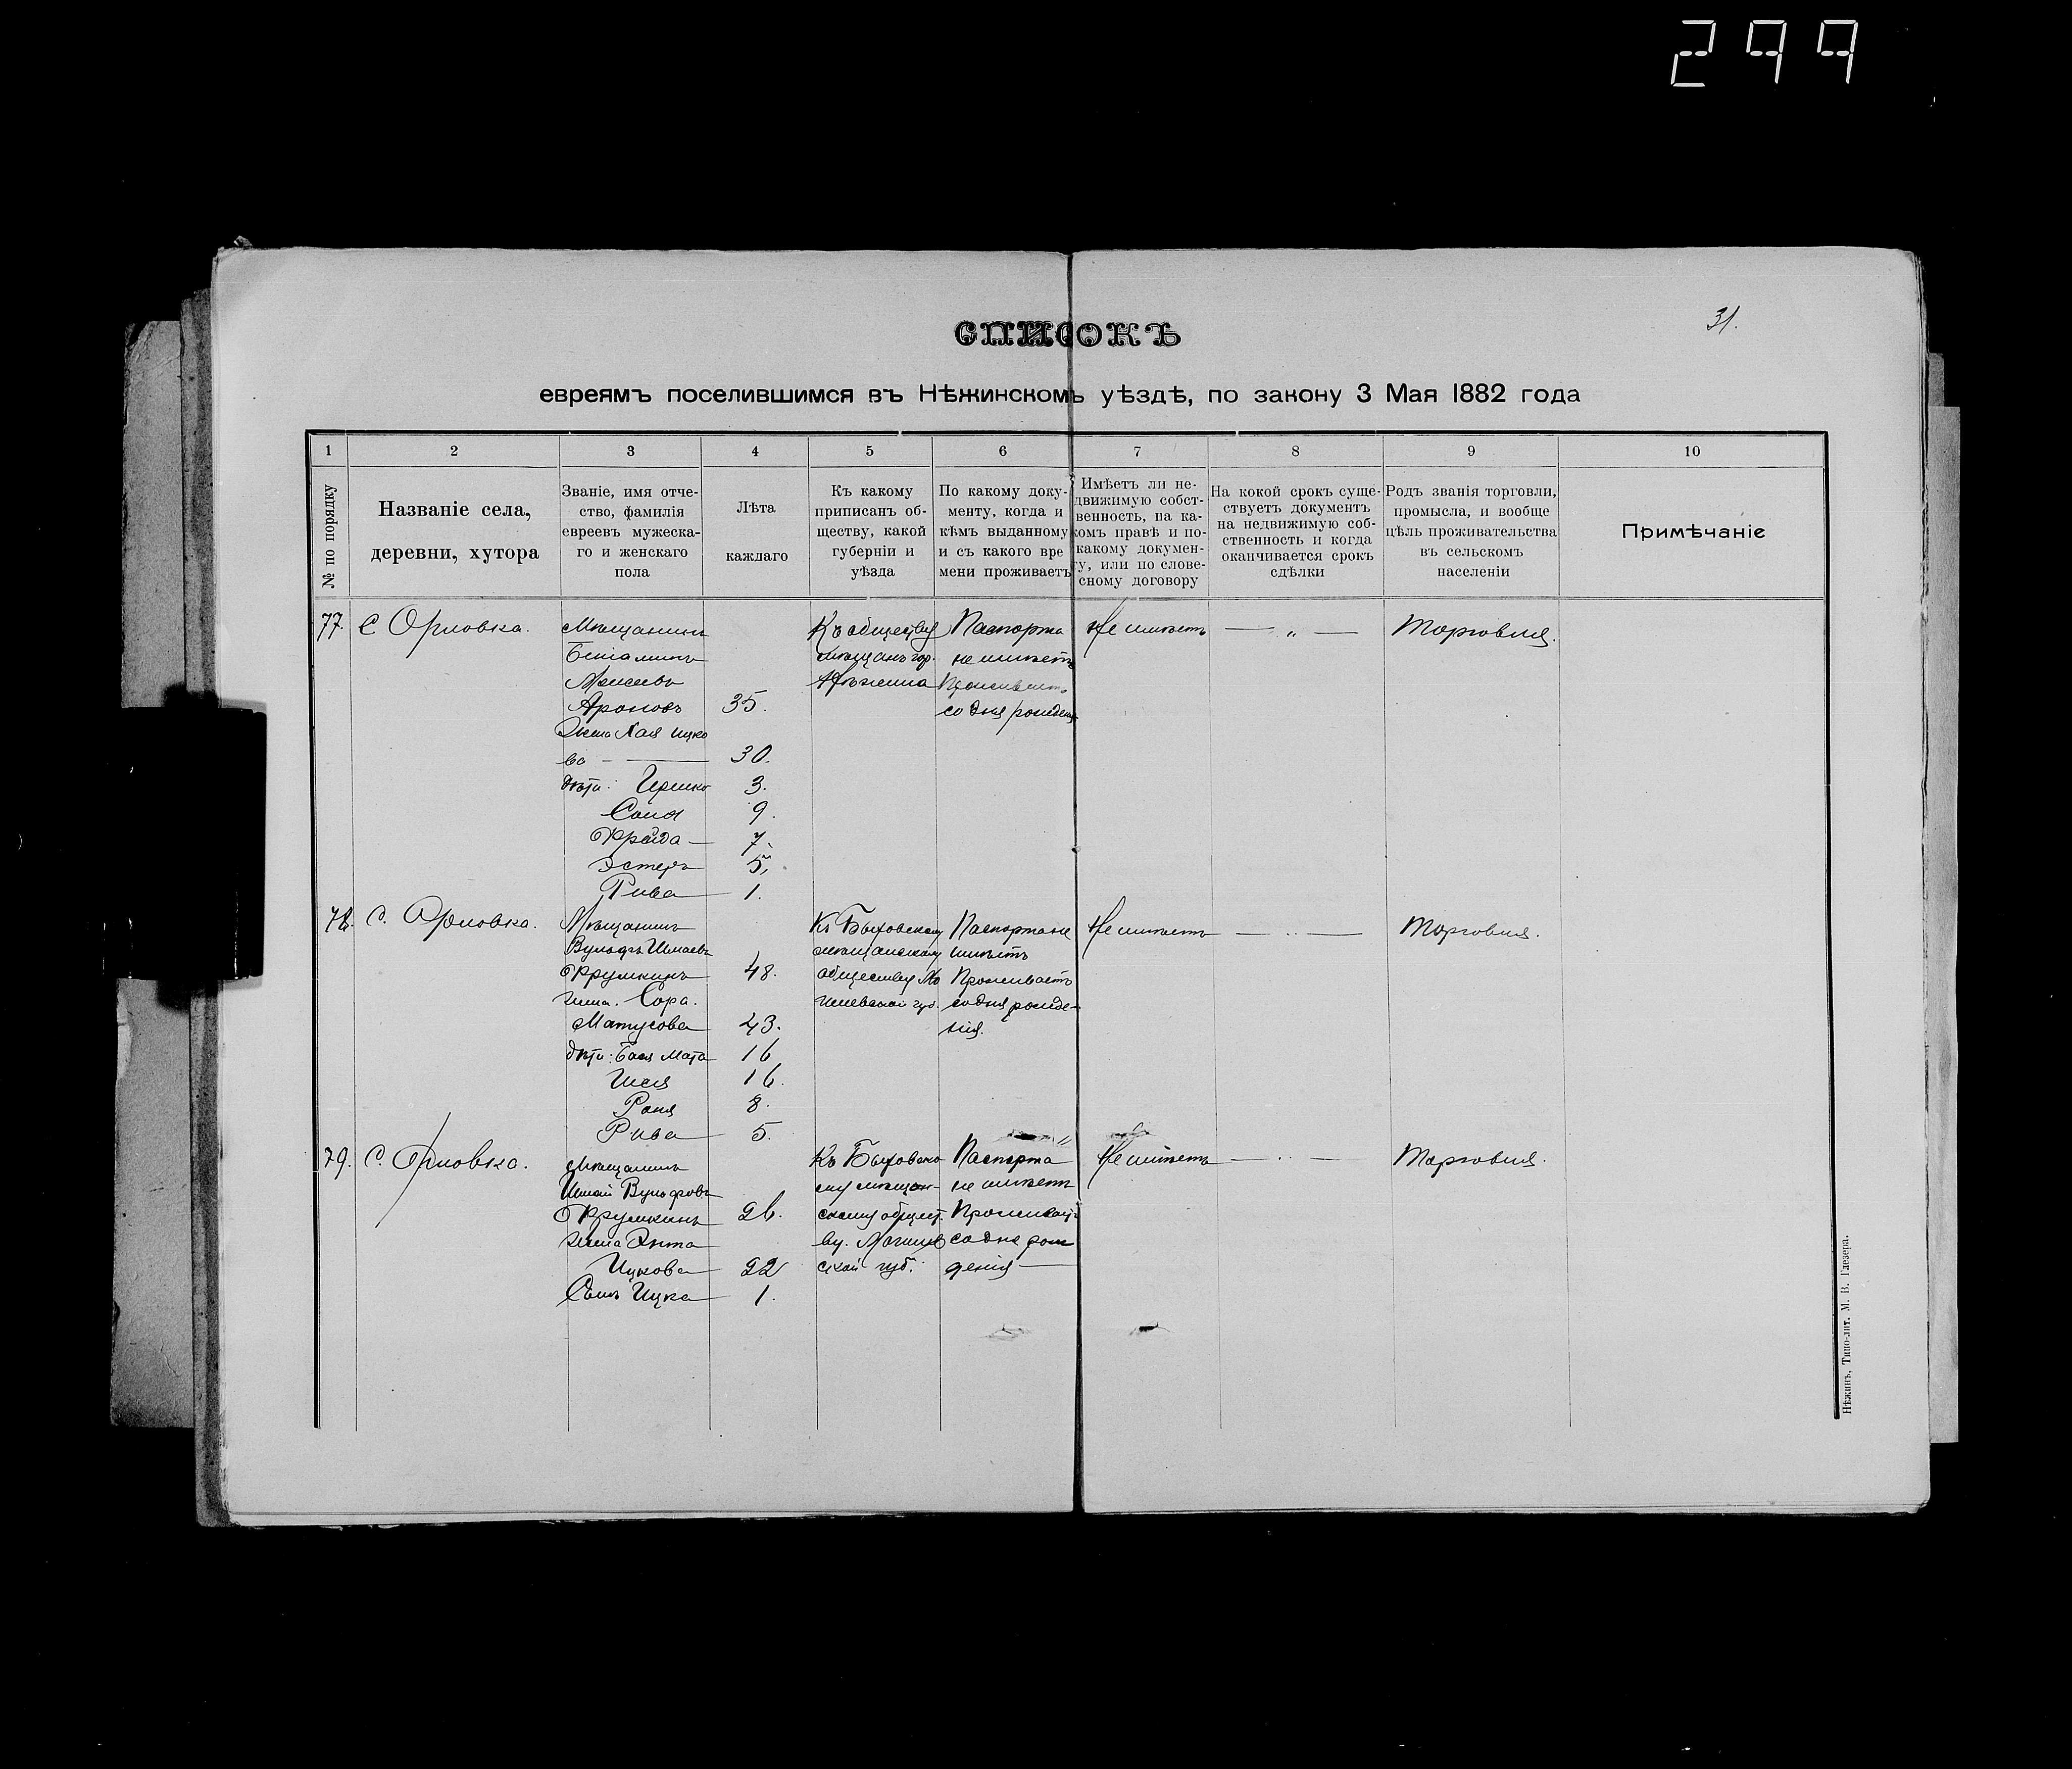 299
31.
СПИСОКЪ
евреямъ поселившимся въ Нѣжинскомъ уѣздѣ, по закону 3 Мая 1882 года
1
2
3
4
5
6
7
8
9
10
№ по порядку
Названіе села,
деревни, хутора
Званіе, имя отче-
ство, фамилія
евреевъ мужеска-
го и женскаго
пола
Лѣта
каждаго
Къ какому
приписанъ об-
ществу, какой
губерніи и
уѣзда
По какому доку-
менту, когда и
кѣмъ выданному
и съ какого вре
мени проживаетъ
Имѣетъ ли не-
движимую собст-
венность, на ка-
комъ правѣ и по-
какому докумен-
ту, или по слове-
сному договору
На кокой срокъ суще-
ствуетъ документъ
на недвижимую соб-
ственность и когда
оканчивается срокъ
сдѣлки
Родъ званія торговли,
промысла, и вообще
цѣль проживательства
въ сельскомъ
населеніи
Примѣчаніе
77.
С Орловка.
Мѣщанинъ
Беніаминъ
Моисеевъ
Ароновъ 35.
Жена Хая Ицко
ва — 30.
дѣти: Гершко 3.
Соня 9.
Фрейда — 7.
Эстеръ 5,
Рива 1.
Къ обществу
мѣщанъ гор.
Нѣжина
Паспорта
не имѣетъ
Проживаетъ
со дня рожденія
Не имѣетъ
— „ —
Торговля.
78.
С. Орловка.
Мѣщанинъ
Вульфъ Шмаевъ
Фрумкинъ 48.
жена. Сора.
Матусова 43.
дѣти: Бася Мата 16
Шея 16.
Раня 8.
Рива 5.
Къ Быховскому
мѣщанскому
обществу Мо
гилевской губ.
Паспорта не
имѣетъ
Проживаетъ
со дня рожде-
нія.
Не имѣетъ
— „ —
Торговля.
79.
С. Орловка.
Мѣщанинъ
Шмай Вульфовъ
Фрумкинъ 26.
жена Энта
Ицкова 22
Сынъ Ицка 1.
Къ Быховско
му мѣщан-
скому общест.
ву. Могилев
ской губ.
Паспорта
не имѣетъ
Проживаетъ
со дня рож
денія —
Не имѣетъ
— „ —
Торговля.
Нѣжинъ, Типо-лит. М. В. Глезера.